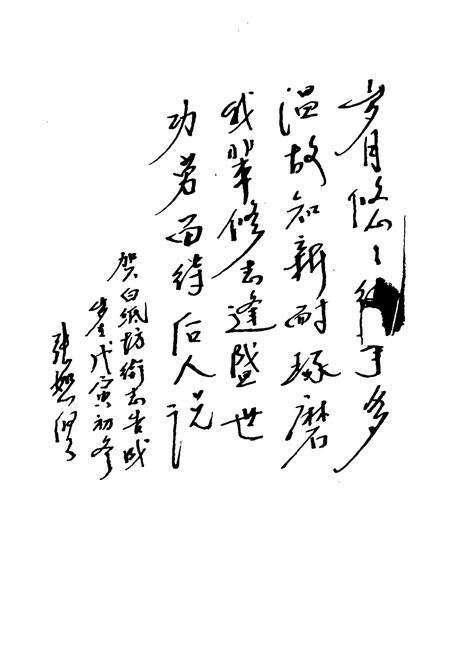 岁月悠々事多
温故知新耐琢磨
我辈修志逢盛世
功劳留待后人说
贺白纸坊街志告成
岁在戊寅初冬
张